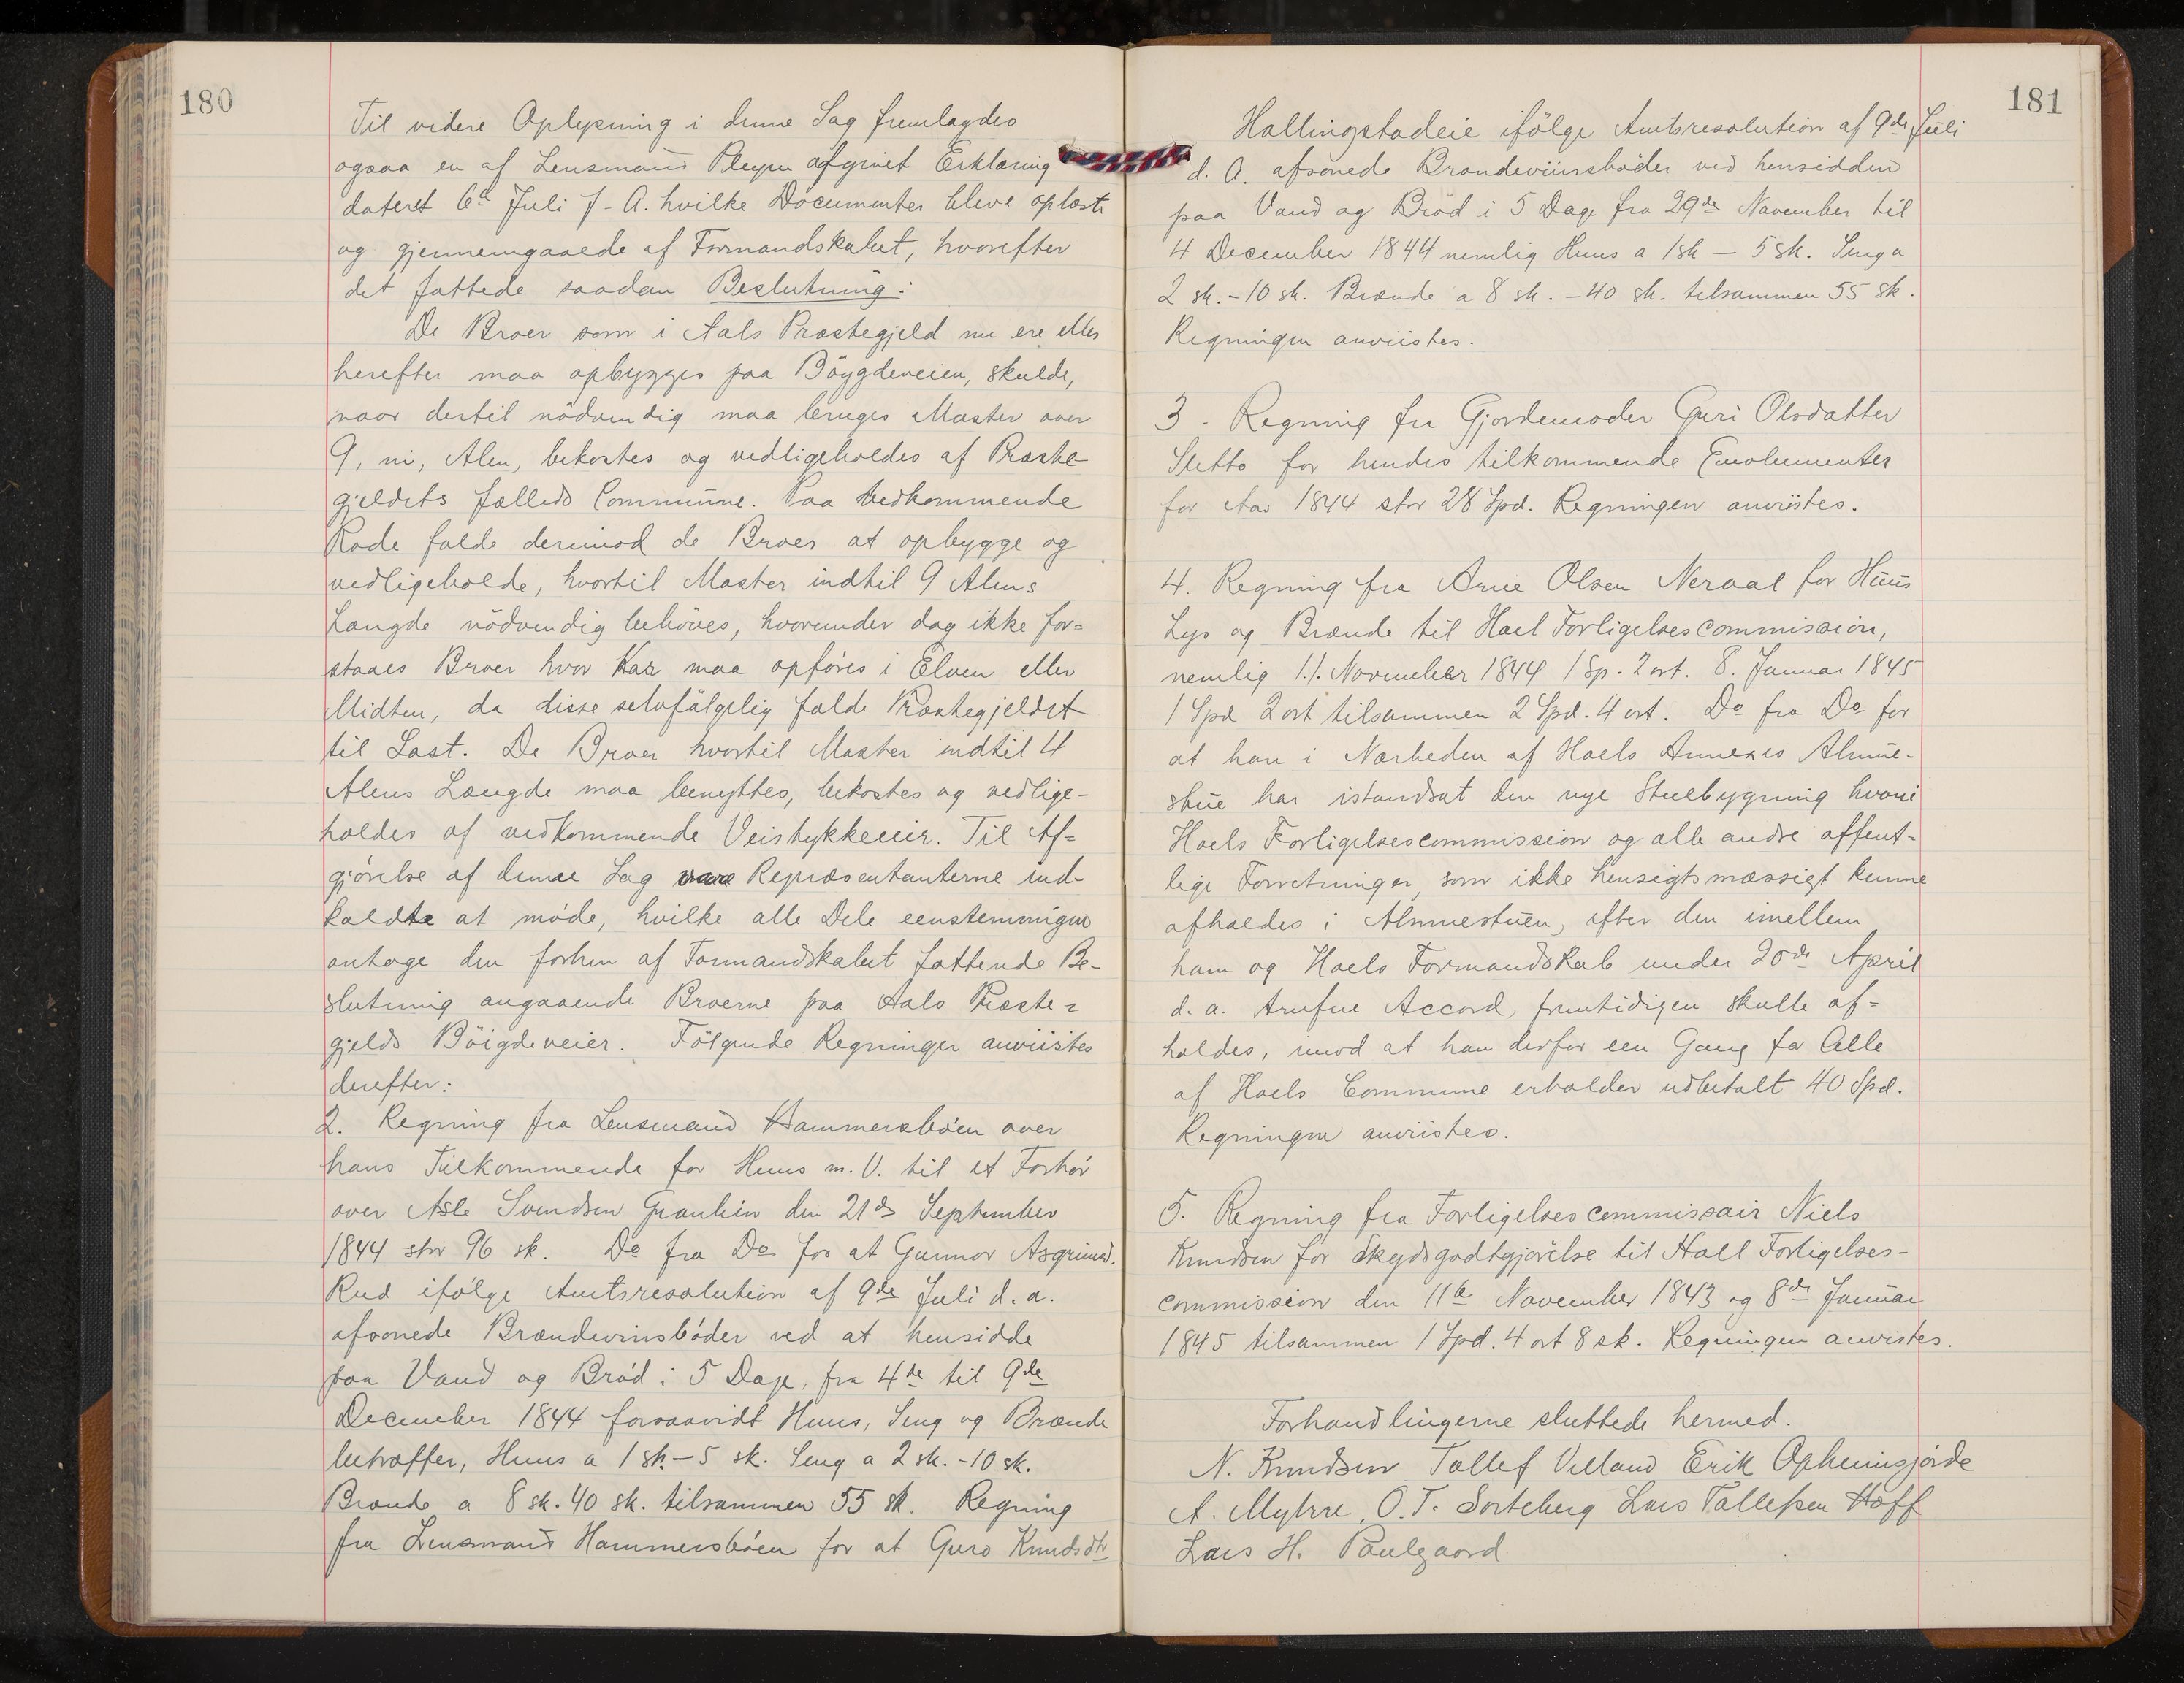 180
Til videre Oplysning i denne Sag fremlagdes
ogsaa en af Lensmand Pleym afgivet Erklæring
dateret 6d Juli f. A. hvilke Documenter bleve oplæste
og gjennemgaaede af Formandskabet, hvorefter
det fattede saadan Beslutning:
De Broer som i Aals Præstegjeld nu ere eller
herefter maa opbygges paa Böygdeveien, skulde,
naar dertil nödvendig maa bruges Master over
9, ni, Alen, bekostes og vedligeholdes af Præste-
gjeldets fælleds Commune. Paa vedkommende
Rode falde derimod de Broer at opbygge og
vedligeholde, hvortil Master indtil 9 Alens
Længde nödvendig behöves, hvorunder dog ikke for=
staaes Broer hvor Kar maa opföres i Elven eller
Midten, da disse selvfölgelig falde Præstegjeldet
til Last. De Broer hvortil Master indtil 4
Alens Længde maa benyttes, bekostes og vedlige-
holdes af vedkommende Veistykkeeier. Til Af=
gjörelse af denne Sag vare Repræsentanterne ind-
kaldte at möde, hvilke alle Dele eenstemmigen
antoge den forhen af Formandskabet fattende Be-
slutning angaaende Broerne paa Aals Præste=
gjelds Böigdeveier. Fölgende Regninger anviistes
derefter:
2. Regning fra Lensmand Hammersböen over
hans Tilkommende for Huus m. V. til et Forhör
over Asle Svendsen Granlien den 21de September
1844 stor 96 sk. Do fra Do for at Gunnor Asgrimsd.
Rud ifölge Amtsresolution af 9de Juli d. a.
afsonede Brændevinsböder ved at hensidde
paa Vand og Bröd i 5 Dage, fra 4de til 9de
December 1844 forsaavidt Huus, Seng og Brænde
betræffer, Huus a 1 sk. – 5 sk. Seng a 2 sk. – 10 sk.
Brænde a 8 sk. 40 sk. tilsammen 55 sk. Regning
fra Lensmand Hammersböen for at Guro Knudsdtr
181
Hallingstadeie ifölge Amtsresolution af 9de Juli
d. A. afsonede Brændeviinsböder ved hensidden
paa Vand og Bröd i 5 Dage fra 29de November til
4 December 1844 nemlig Huus a 1 sk – 5 sk. Seng a
2 sk. – 10 sk. Brænde a 8 sk. – 40 sk. tilsammen 55 sk.
Regningen anviistes.
3. Regning fra Gjordemoder Guri Olsdatter
Sletto for hendes tilkommende Emolumenter
for Aar 1844 stor 28 Spd. Regningen anviistes.
4. Regning fra Arne Olsen Neraal for Huus
Lys og Brænde til Hoel Forligelsescommission,
nemlig 11. November 1844 1 Sp. 2 ort. 8. Januar 1845
1 Spd 2 ort tilsammen 2 Spd. 4 ort. Do fra Do for
at han i Nærheden af Hoels Annexes Almue-
stue har istandsat den nye Stuebygning hvori
Hoels Forligelsescommission og alle andre offent-
lige Forretninger, som ikke hensigtsmæssigt kunne
afholdes i Almuestuen, efter den imellem
ham og Hoels Formandskab under 20de April
d. a. trufne Accord, fremtidigen skulle af=
holdes, imod at han derfor een Gang for Alle
af Hoels Commune erholder udbetalt 40 Spd.
Regningen anviistes.
5. Regning fra Forligelsescommissair Niels
Knudsen for Skydsgodtgjörelse til Hall Forligelses-
commission den 11te November 1843 og 8de Januar
1845 tilsammen 1 Spd. 4 ort 8 sk. Regningen anvistes.
Forhandlingerne sluttede hermed.
N. Knudsen Tollef Villand Erik Opheimsjorde
A. Myhre, O. T. Sorteberg Lars Tollefsen Hoff
Lars H. Paulgaard